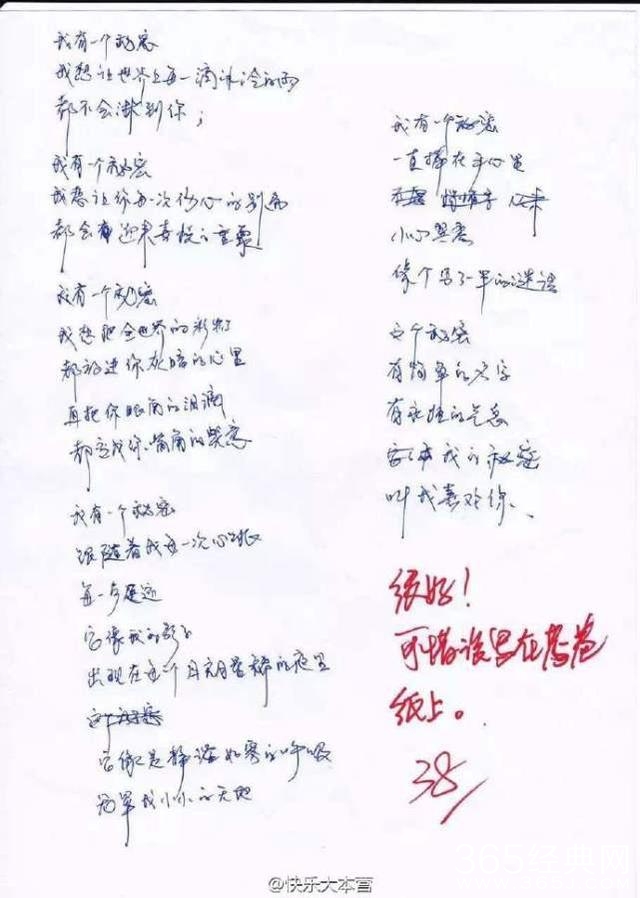 我有一个秘密
我想让世界上每一滴冰冷的雨
都不会淋到你；
我有一个秘密
我想让你每一次伤心的别离
都会有迎来喜悦的重聚
我有一个秘密
我想把全世界的彩虹
都放进你灰暗的心里
再把你眼角的泪滴
都变成你嘴角的笑意
我有一个秘密
跟随着我每一次心跳
每一步足迹
它像我的影子
出现在每个月亮升起的夜里
它像是静谧如寒的呼吸
笼罩我小小的天地
我有一个秘密
一直捧在手心里
小心翼翼
像个写了一半的谜语
这个秘密
有简单的名字
有永恒的气息
它是我的秘密
叫我喜欢你、
很好！
可惜没写在答卷
纸上。
38
@快乐大本营
365经典网